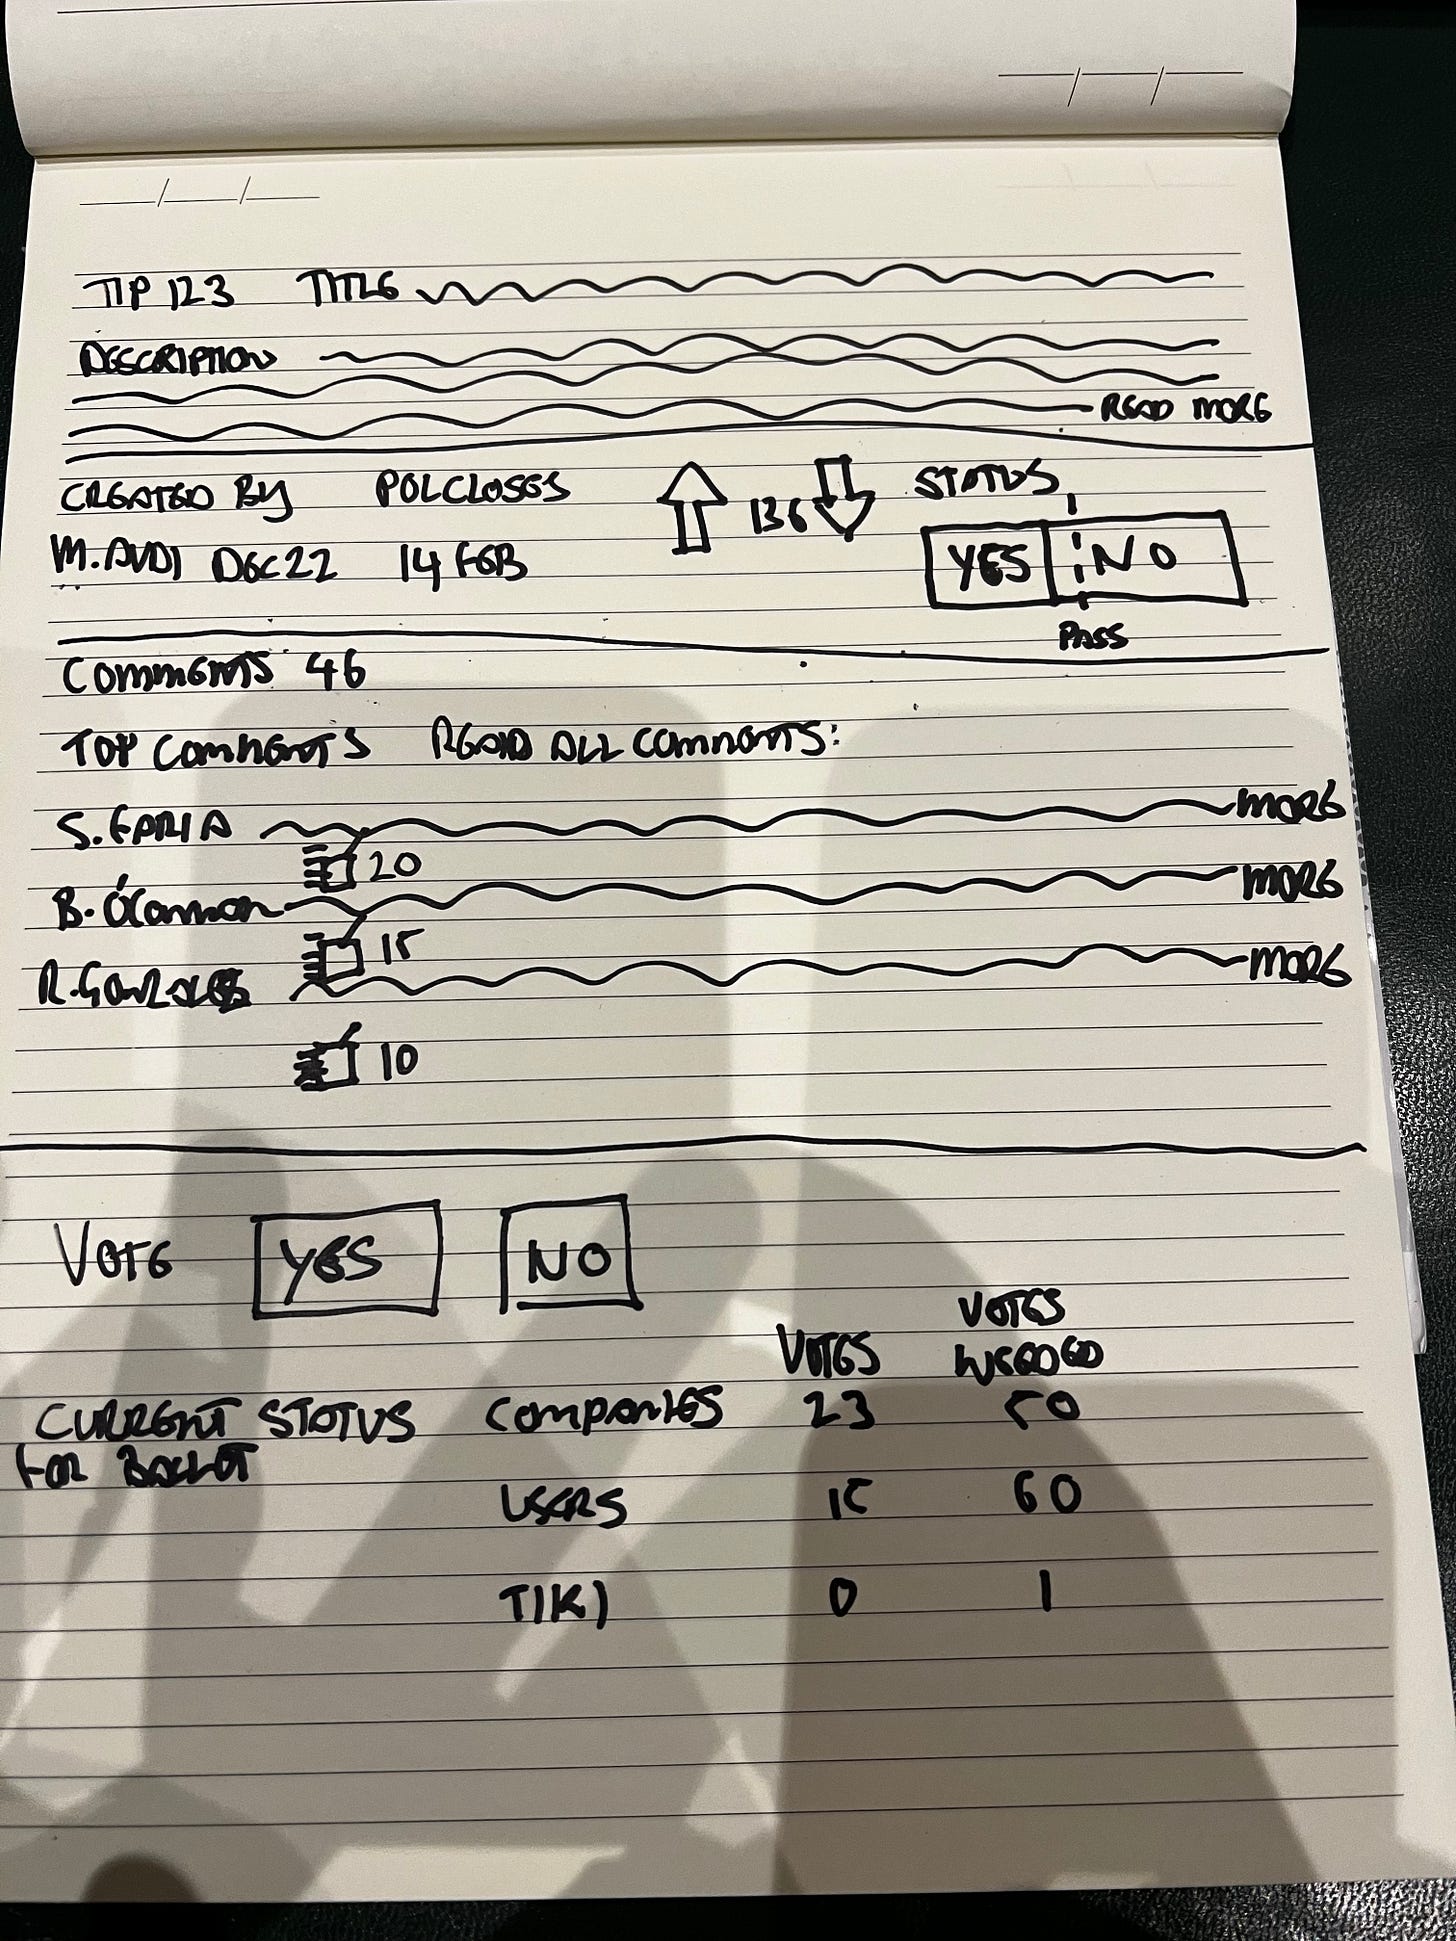 TIP 123 TITLE
DESCRIPTION
READ MORE
CREATED BY POLCLOSES 136 STATUS
M. AUDI DEC 22 14 FEB YES NO
PASS
COMMENTS 46
TOP COMMENTS READ ALL COMMENTS:
S. FARIA MORE
20
B. O'Connor MORE
15
R. GONZALES MORE
10
VOTE YES NO
VOTES
VOTES NEEDED
CURRENT STATUS COMPANIES 23 50
FOR BALLOT
USERS 15 60
TIKI 0 1